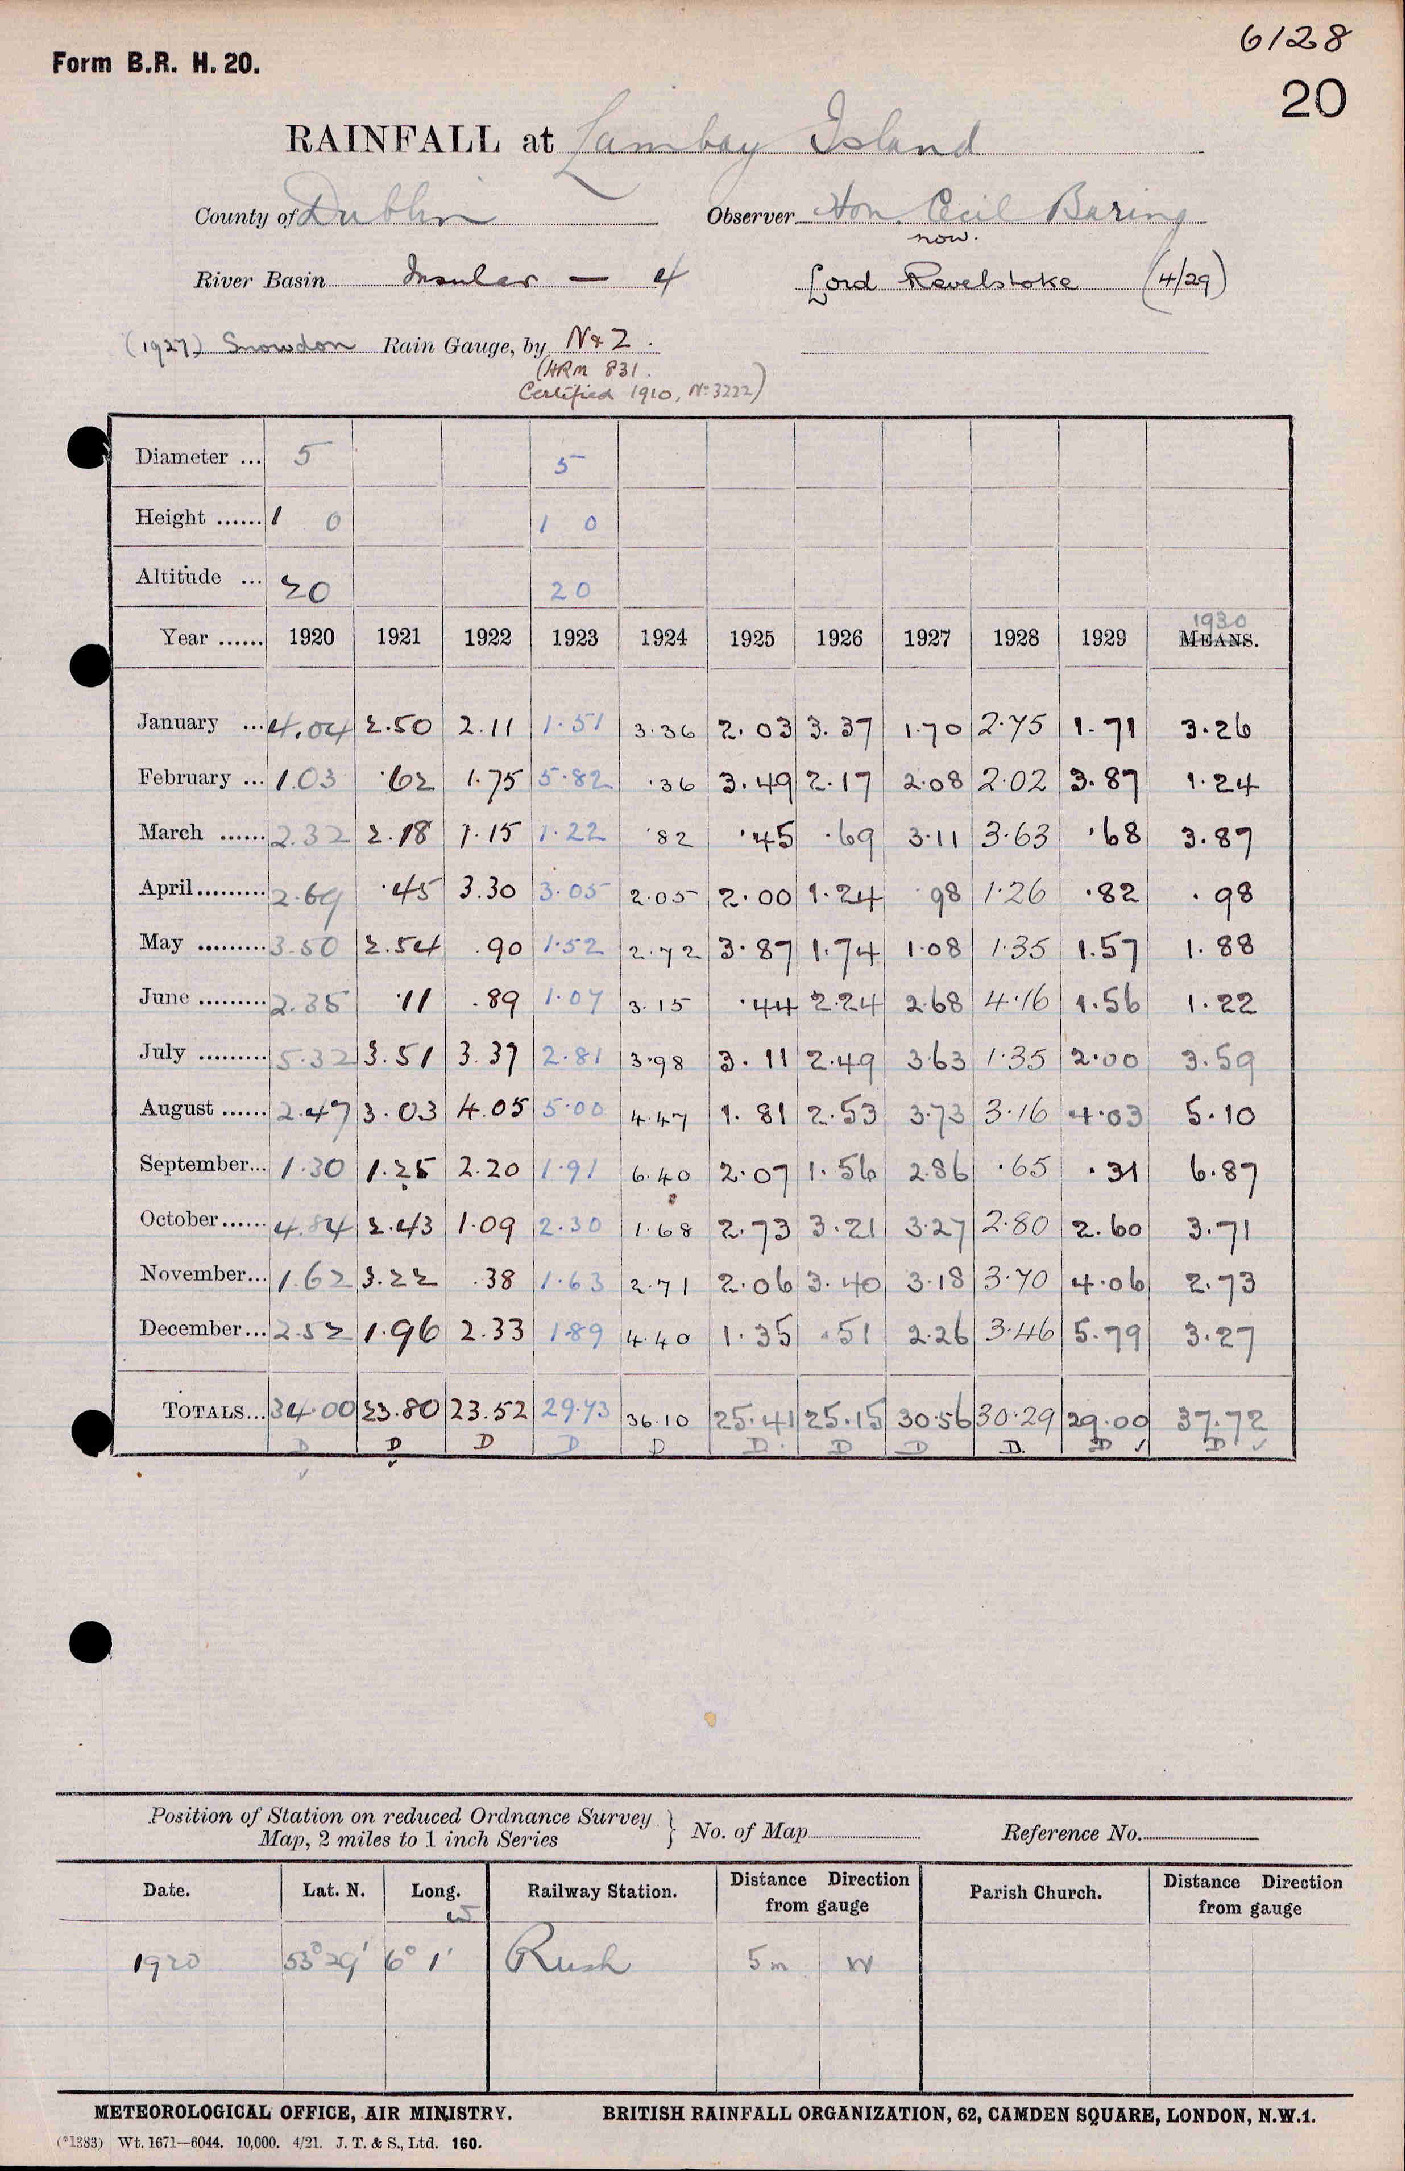 6128
Form B.R. H. 20.
20
RAINFALL at Lambay Island
County of Dublin Observer Hon. Cecil Baring
now.
River Basin Insular — 4 Lord Revelstoke (4/29)
(1927) Snowdon Rain Gauge, by N & Z.
(HRM 831.
Certified 1910, No 3222)
Diameter ... 5 5
Height ...... 1 0 1 0
Altitude ... 20 20
1930
Year ...... 1920 1921 1922 1923 1924 1925 1926 1927 1928 1929 MEANS.
January ... 4.04 2.50 2.11 1.51 3.36 2.03 3.37 1.70 2.75 1.71 3.26
February ... 1.03 .62 1.75 5.82 .36 3.49 2.17 2.08 2.02 3.87 1.24
March ...... 2.32 2.18 1.15 1.22 .82 .45 .69 3.11 3.63 .68 3.87
April......... 2.69 .45 3.30 3.05 2.05 2.00 1.24 .98 1.26 .82 .98
May ......... 3.50 2.54 .90 1.52 2.72 3.87 1.74 1.08 1.35 1.57 1.88
June ......... 2.35 .11 .89 1.07 3.15 .44 2.24 2.68 4.16 1.56 1.22
July ......... 5.32 3.51 3.37 2.81 3.98 3.11 2.49 3.63 1.35 2.00 3.59
August ...... 2.47 3.03 4.05 5.00 4.47 1.81 2.53 3.73 3.16 4.03 5.10
September... 1.30 1.25 2.20 1.91 6.40 2.07 1.56 2.86 .65 .31 6.87
October...... 4.84 2.43 1.09 2.30 1.68 2.73 3.21 3.27 2.80 2.60 3.71
November... 1.62 3.22 .38 1.63 2.71 2.06 3.40 3.18 3.70 4.06 2.73
December... 2.52 1.96 2.33 1.89 4.40 1.35 .51 2.26 3.46 5.79 3.27
TOTALS... 34.00 23.80 23.52 29.73 36.10 25.41 25.15 30.56 30.29 29.00 37.72
D D D D D D D D D D ✓ D ✓
✓ ✓
Position of Station on reduced Ordnance Survey
Map, 2 miles to 1 inch Series } No. of Map Reference No.
Date. Lat. N. Long. W Railway Station. Distance Direction from gauge Parish Church. Distance Direction from gauge
1920 53° 29' 6° 1' Rush 5m W
METEOROLOGICAL OFFICE, AIR MINISTRY. BRITISH RAINFALL ORGANIZATION, 62, CAMDEN SQUARE, LONDON, N.W.1.
(*1383) Wt. 1671—6044. 10,000. 4/21. J. T. & S., Ltd. 160.